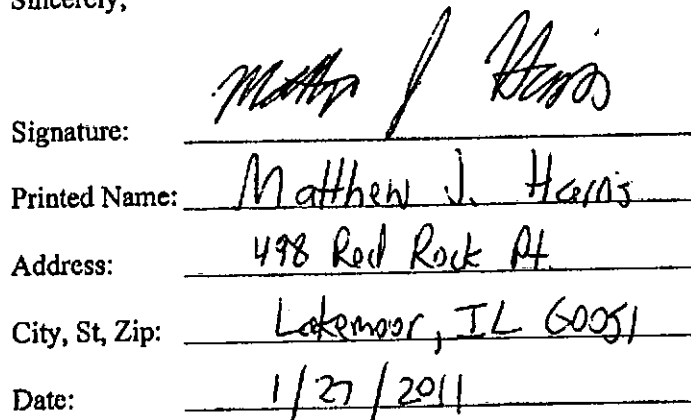 Sincerely,
Signature: Matthew J Harris
Printed Name: Matthew J. Harris
Address: 498 Red Rock Pt.
City, St, Zip: Lakemoor, IL 60051
Date: 1/27/2011